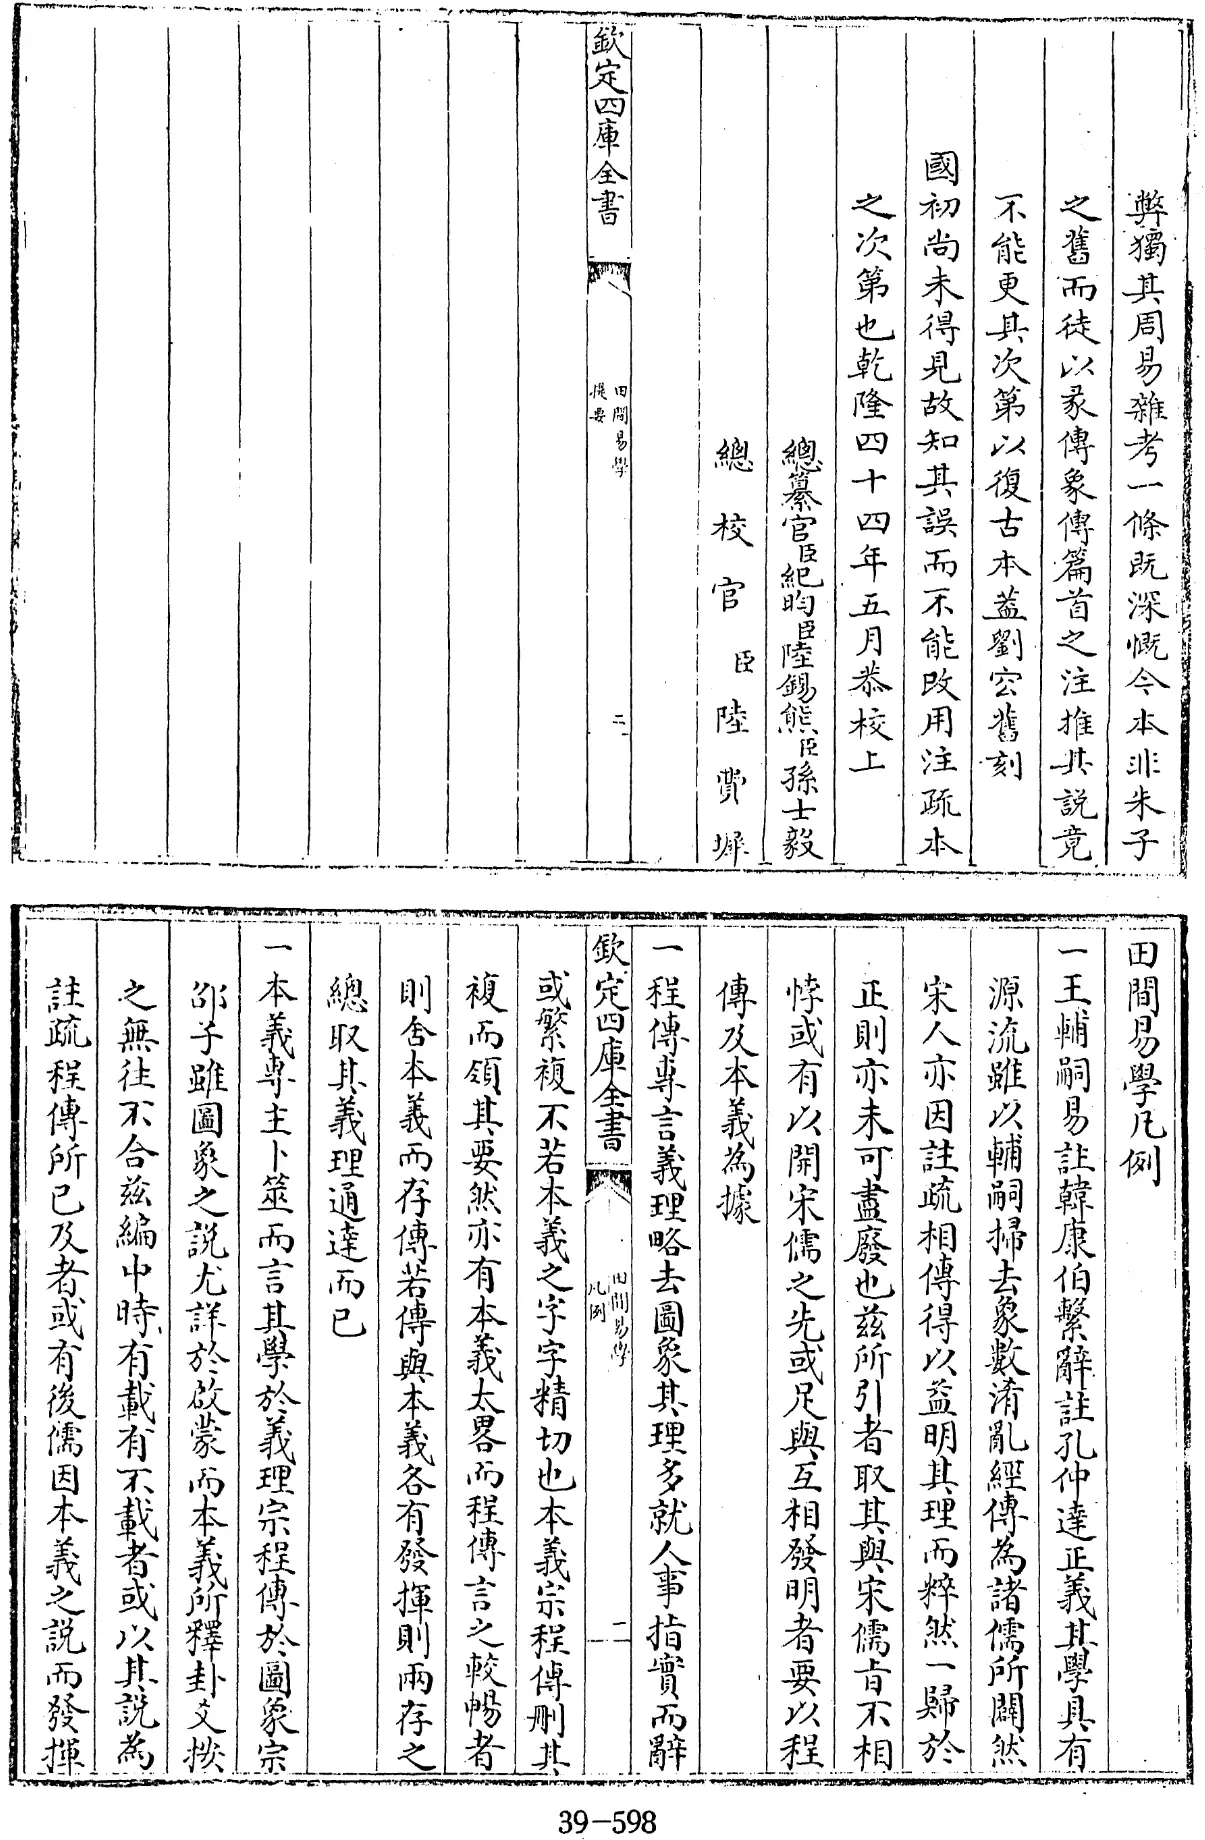 弊獨其周易雜考一條既深慨今本非朱子
之舊而徒以彖傳象傳篇首之注推其説竟
不能更其次第以復古本葢劉空舊刻
國初尚未得見故知其誤而不能改用注疏本
之次第也乾隆四十四年五月恭校上
總纂官臣紀昀臣陸錫熊臣孫士毅
總校官臣陸費墀
欽定四庫全書
田間易學
提要
二
田間易學凡例
一王輔嗣易註韓康伯繫辭註孔仲達正義其學具有
源流雖以輔嗣掃去象數淆亂經傳為諸儒所闢然
宋人亦因註疏相傳得以益明其理而粹然一歸於
正則亦未可盡廢也兹所引者取其與宋儒㫖不相
悖或有以開宋儒之先或足與互相發明者要以程
傳及本義為據
一程傳專言義理略去圖象其理多就人事指實而辭
欽定四庫全書
田間易學
凡例
一
或繁複不若本義之字字精切也本義宗程傳刪其
複而領其要然亦有本義太畧而程傳言之較暢者
則舍本義而存傳若傳與本義各有發揮則兩存之
總取其義理通達而已
一本義專主卜筮而言其學於義理宗程傳於圖象宗
邵子雖圖象之説尤詳於啟蒙而本義所釋卦爻揆
之無往不合兹編中時有載有不載者或以其説為
註疏程傳所已及者或有後儒因本義之説而發揮
39-598